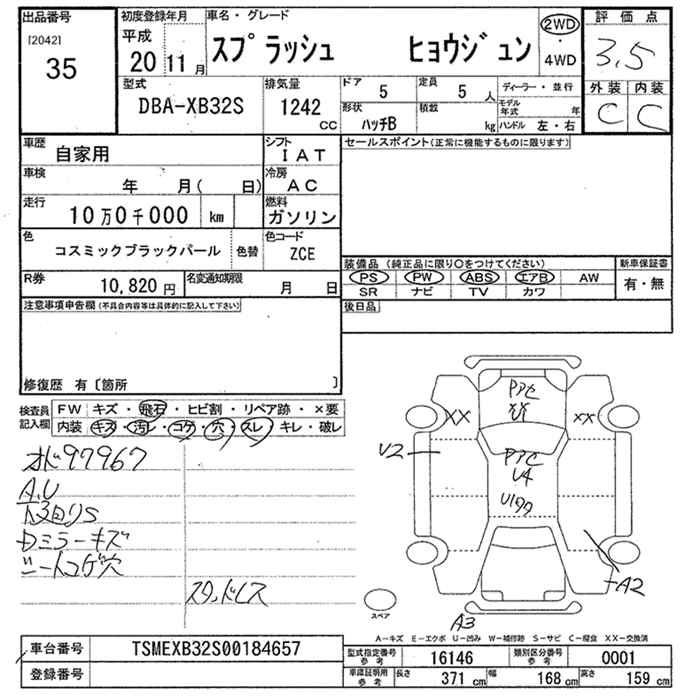 出品番号
[2042]
35
初度登録年月
平成
20 11月
車名・グレード
スプラッシュ ヒョウジュン
2WD
・
4WD
評価点
3.5
外装 内装
C C
型式
DBA-XB32S
排気量
1242
CC
ドア 5
定員 5 人
形状 ハッチB
積載 kg
ディーラー・並行
モデル年式 年
ハンドル 左・右
車歴 自家用
シフト IAT
車検 年 月( 日)
冷房 AC
走行 10万0千000 km
燃料 ガソリン
色 コスミックブラックパール
色替
色コード ZCE
R券 10,820 円
名変通知期限 月 日
セールスポイント(正常に機能するものに限ります)
装備品 (純正品に限り○をつけてください)
PS PW ABS エアB AW
SR ナビ TV カワ
新車保証書
有・無
後日品
注意事項申告欄(不具合内容等は具体的に記入して下さい)
修復歴 有〔箇所 〕
検査員記入欄
FW キズ・飛石・ヒビ割・リペア跡・×要
内装 キズ・汚レ・コゲ・穴・スレ・キレ・破レ
97967
A,U
Dミラーキズ
シートコゲ穴
スタッドレス
XX
XX
U2
アアセ
アアセ
U4
A2
A3
スペア
A-キズ E-エクボ U-凹み W-補修跡 S-サビ C-腐食 XX-交換済
車台番号 TSMEXB32S00184657
登録番号
型式指定番号参考 16146
類別区分番号参考 0001
車庫証明用参考 長さ 371 cm 幅 168 cm 高さ 159 cm